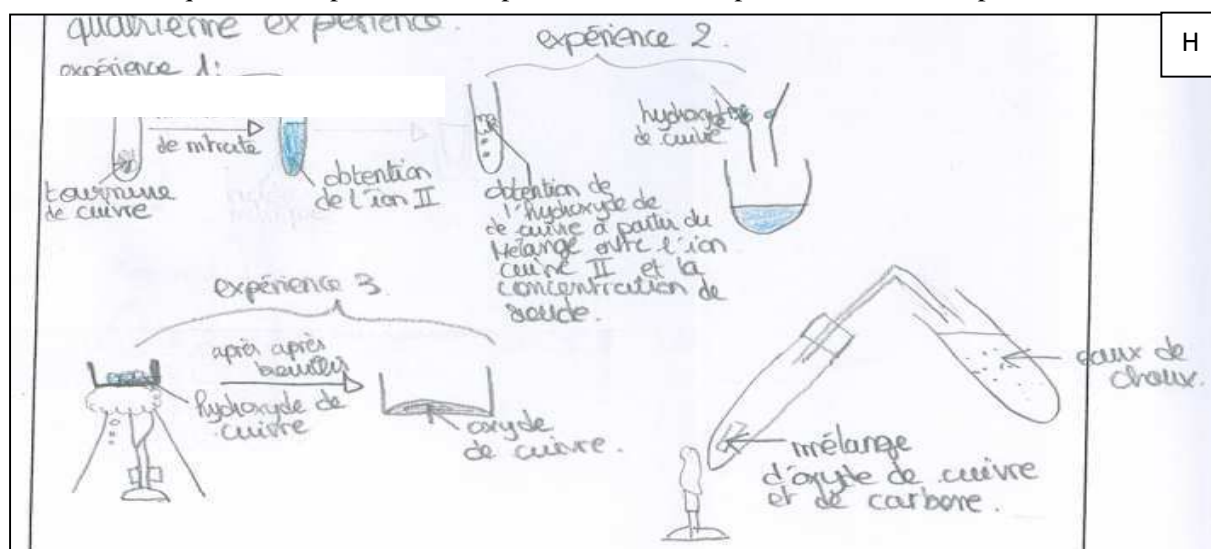 quatrième expérience.
expérience 1:
de nitrate
tournure
de cuivre
obtention
de l'ion II
expérience 2.
hydroxyde
de cuivre
obtention de
l'hydroxyde de
de cuivre à partir du
Mélange entre l'ion
cuivre II et la
concentration de
soude.
H
expérience 3
après après
hydroxyde de
cuivre
oxyde
de cuivre.
eaux de
chaux.
mélange
d'oxyte de cuivre
et de carbone.